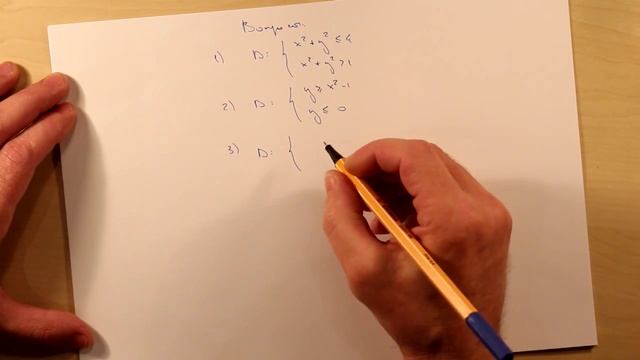 Вопросы.
1) D: { x² + y² ≤ 4
x² + y² > 1
2) D: { y ≥ x² - 1
y ≤ 0
3) D: {